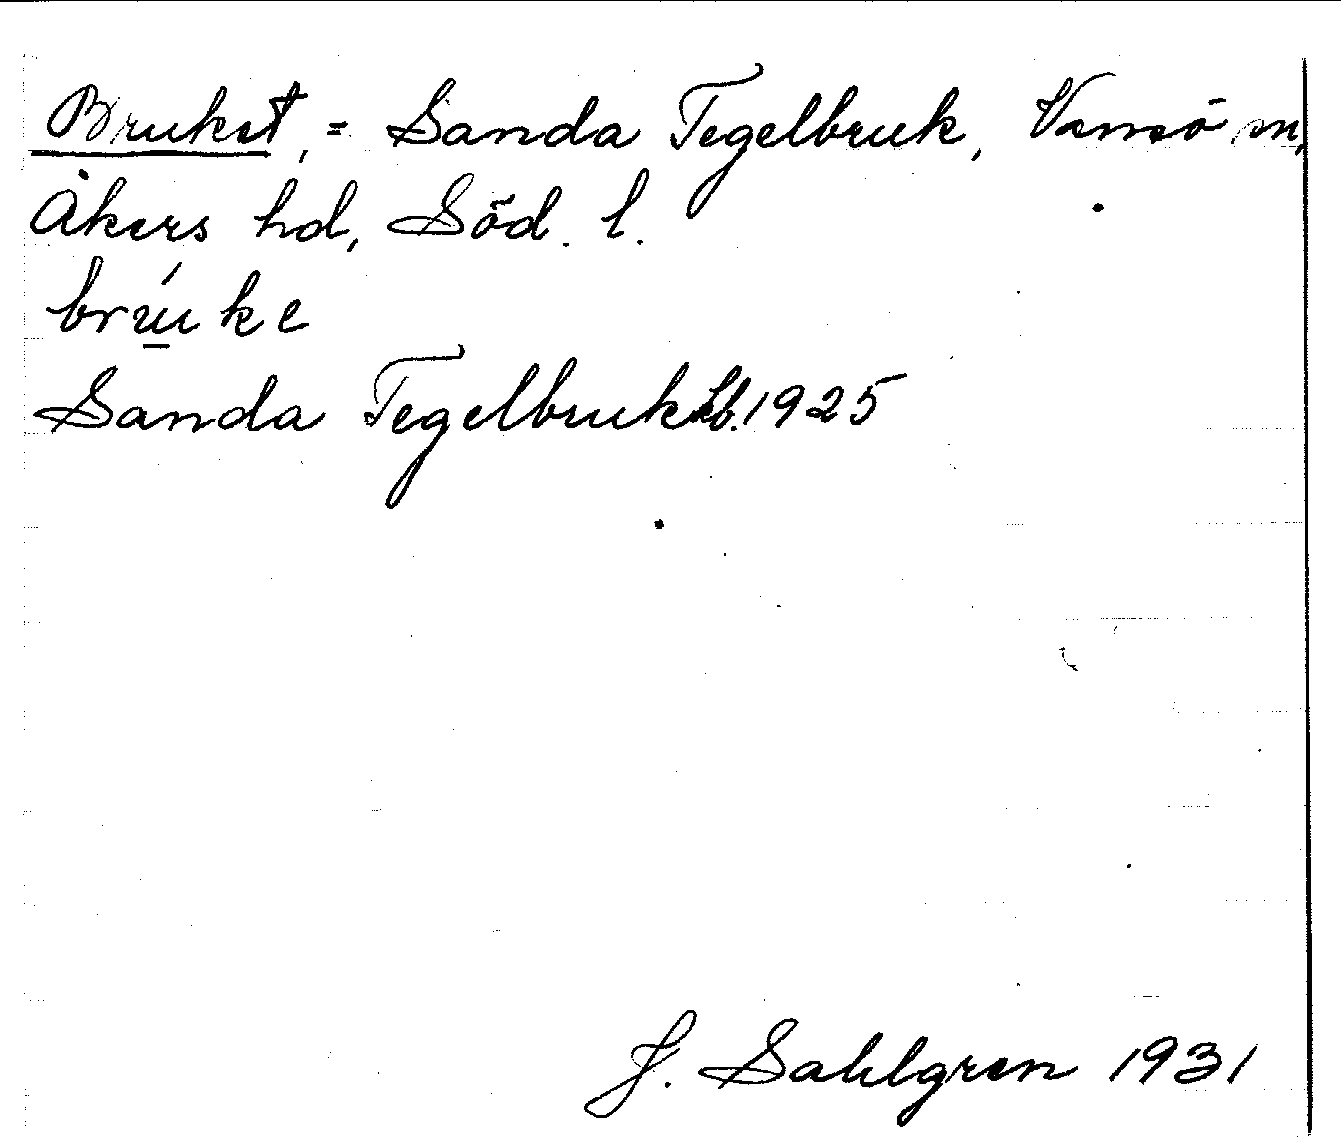 Bruket, = Sanda Tegelbruk, Vansö sn,
Åkers hd, Söd. l.
brúke
Sanda Tegelbruk kb. 1925
J. Sahlgren 1931